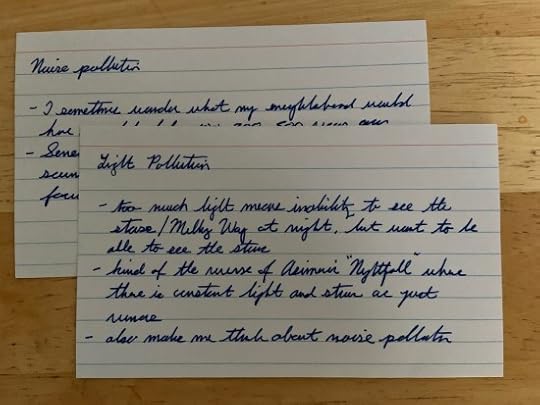 Noise pollution
- I sometimes wonder what my neighborhood would
have
200, 500 years ago
-
Light Pollution
- too much light means inability to see the
stars/Milky Way at night, but want to be
able to see the stars
- kind of the reverse of Asimov's "Nightfall" where
there is constant light and stars are just
rumors
- also makes me think about noise pollution